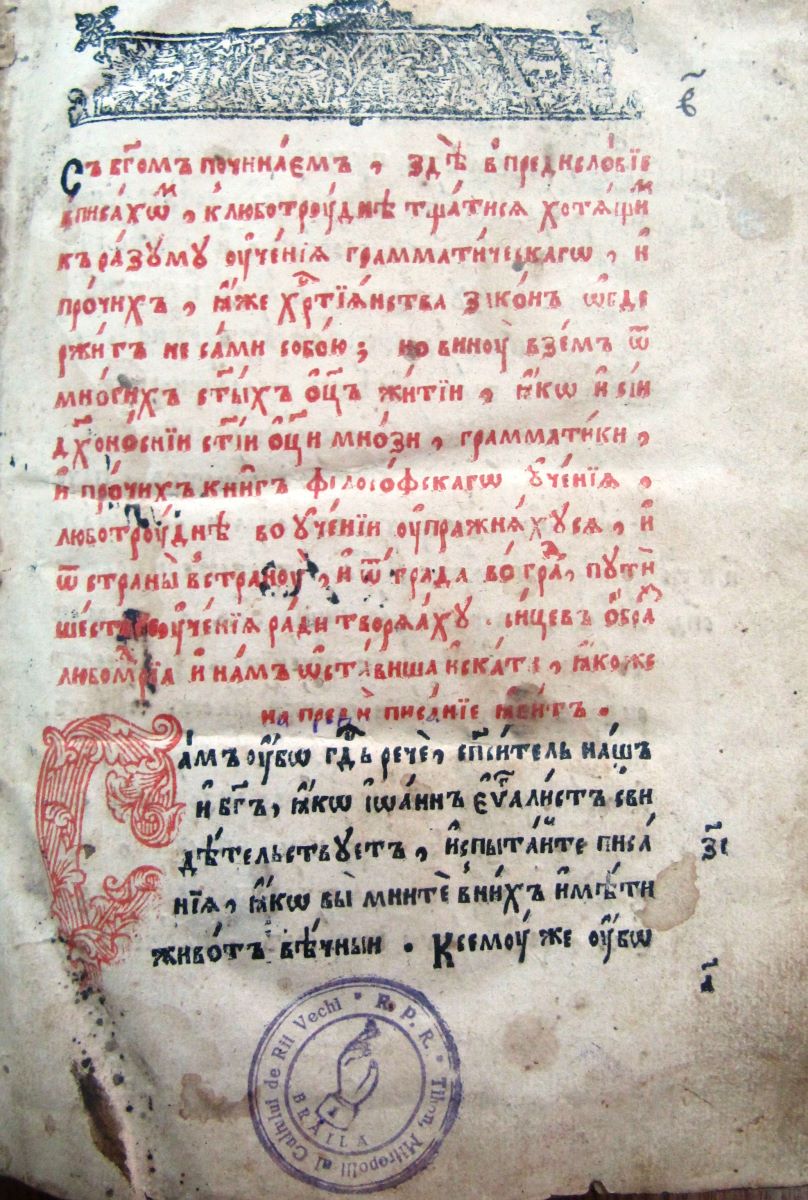 в҃
Съ бг҃омъ починаемъ , здѣ в̾предисловїе
вписахѡм , клюботрꙋднѣ тщатися хотящїм
кразуму оученїя грамматическагѡ , и
прочихъ , яже хрⷭ҇тїянства законъ ѡбде
ржитъ не сами собою ; но винꙋ вземъ ѿ
многихъ ст҃ыхъ ѻц҃ъ житїи , якѡ и сїи
дх҃оноснїи ст҃їи ѻц҃и мнѡзи , грамматики ,
и прочихъ книгъ філософскагѡ ученїя ,
люботрꙋднѣ во ученїи оупражняхуся , и
ѿ страны встранꙋ , и ѿ града во град , путе
шествоученїя ради творяаху . сицев ѻбра
любомⷣрїа и намъ ѡставиша искати , якоже
на преди писанїе явитъ .
Самъ оубѡ гдⷭ҇ь рече , спⷭ҇итель нашъ
и бг҃ъ , якѡ іѡаннъ еѵⷢ҇алистъ сви
дѣтельствуетъ , испытайте писа
нїя , якѡ вы мните в̾нихъ имѣти
животъ вѣчныи . Ксемꙋ же оубѡ
з҃е
і҃
R. P. R. • Tihon, Mitropolit al Cultului de Rit Vechi •
BRAILA